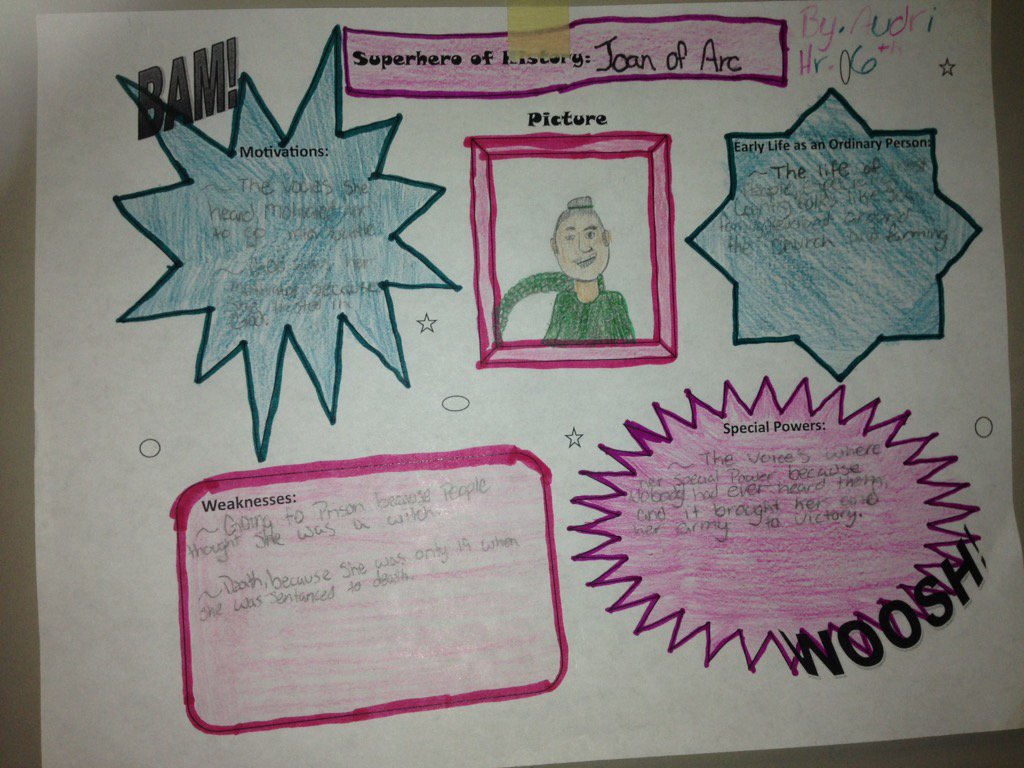 BAM!
Superhero of History: Joan of Arc
By. Audri
Hr. 06th
Picture
Motivations:
~ The voices she
heard motivated her
to go into battle.
her
motivator because
she trusted in
God.
Early Life as an Ordinary Person:
~ The life of
people
around
the church and farming
Weaknesses:
~ Going to Prison because People
thought she was a witch.
~ Death, because she was only 19 when
she was sentanced to death.
Special Powers:
~ The voices where
her special Power because
nobody had ever heard them,
and it brought her and
her army to victory.
WOOSH!